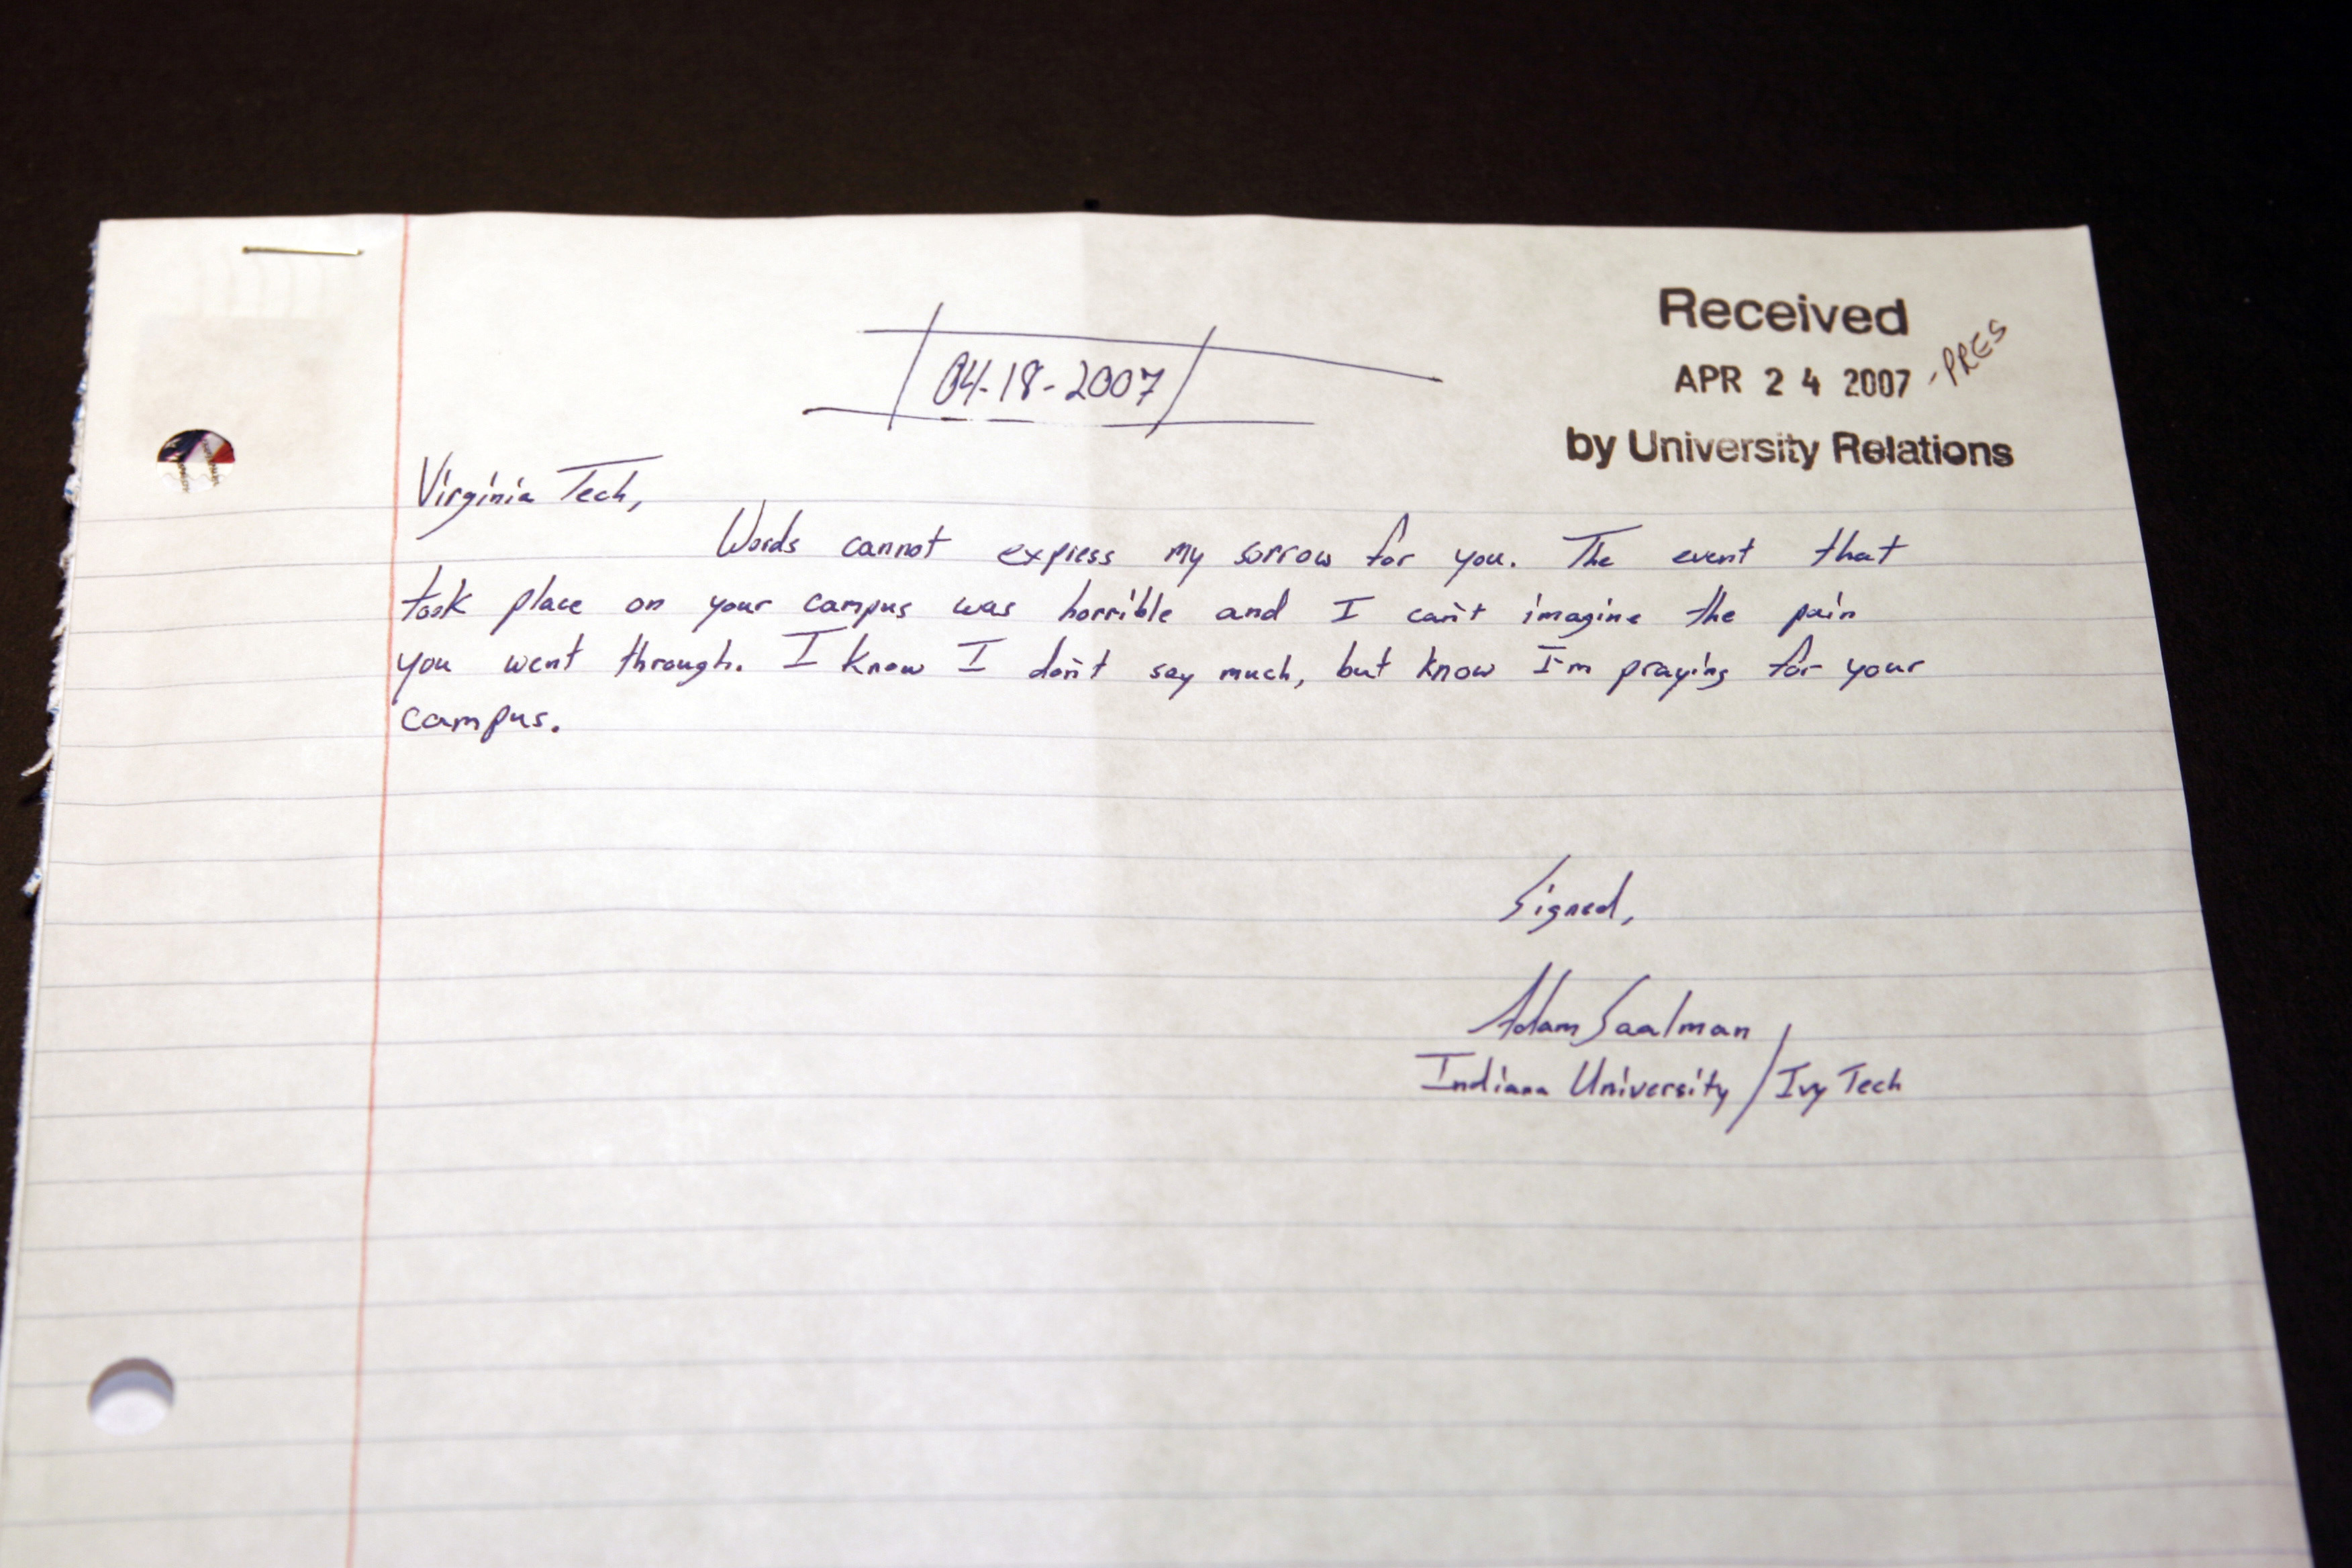 Received
APR 24 2007 -PRES
by University Relations
04-18-2007
Virginia Tech,
Words cannot express my sorrow for you. The event that
took place on your campus was horrible and I can't imagine the pain
you went through. I know I don't say much, but know I'm praying for your
campus.
Signed,
Adam Saalman
Indiana University / Ivy Tech